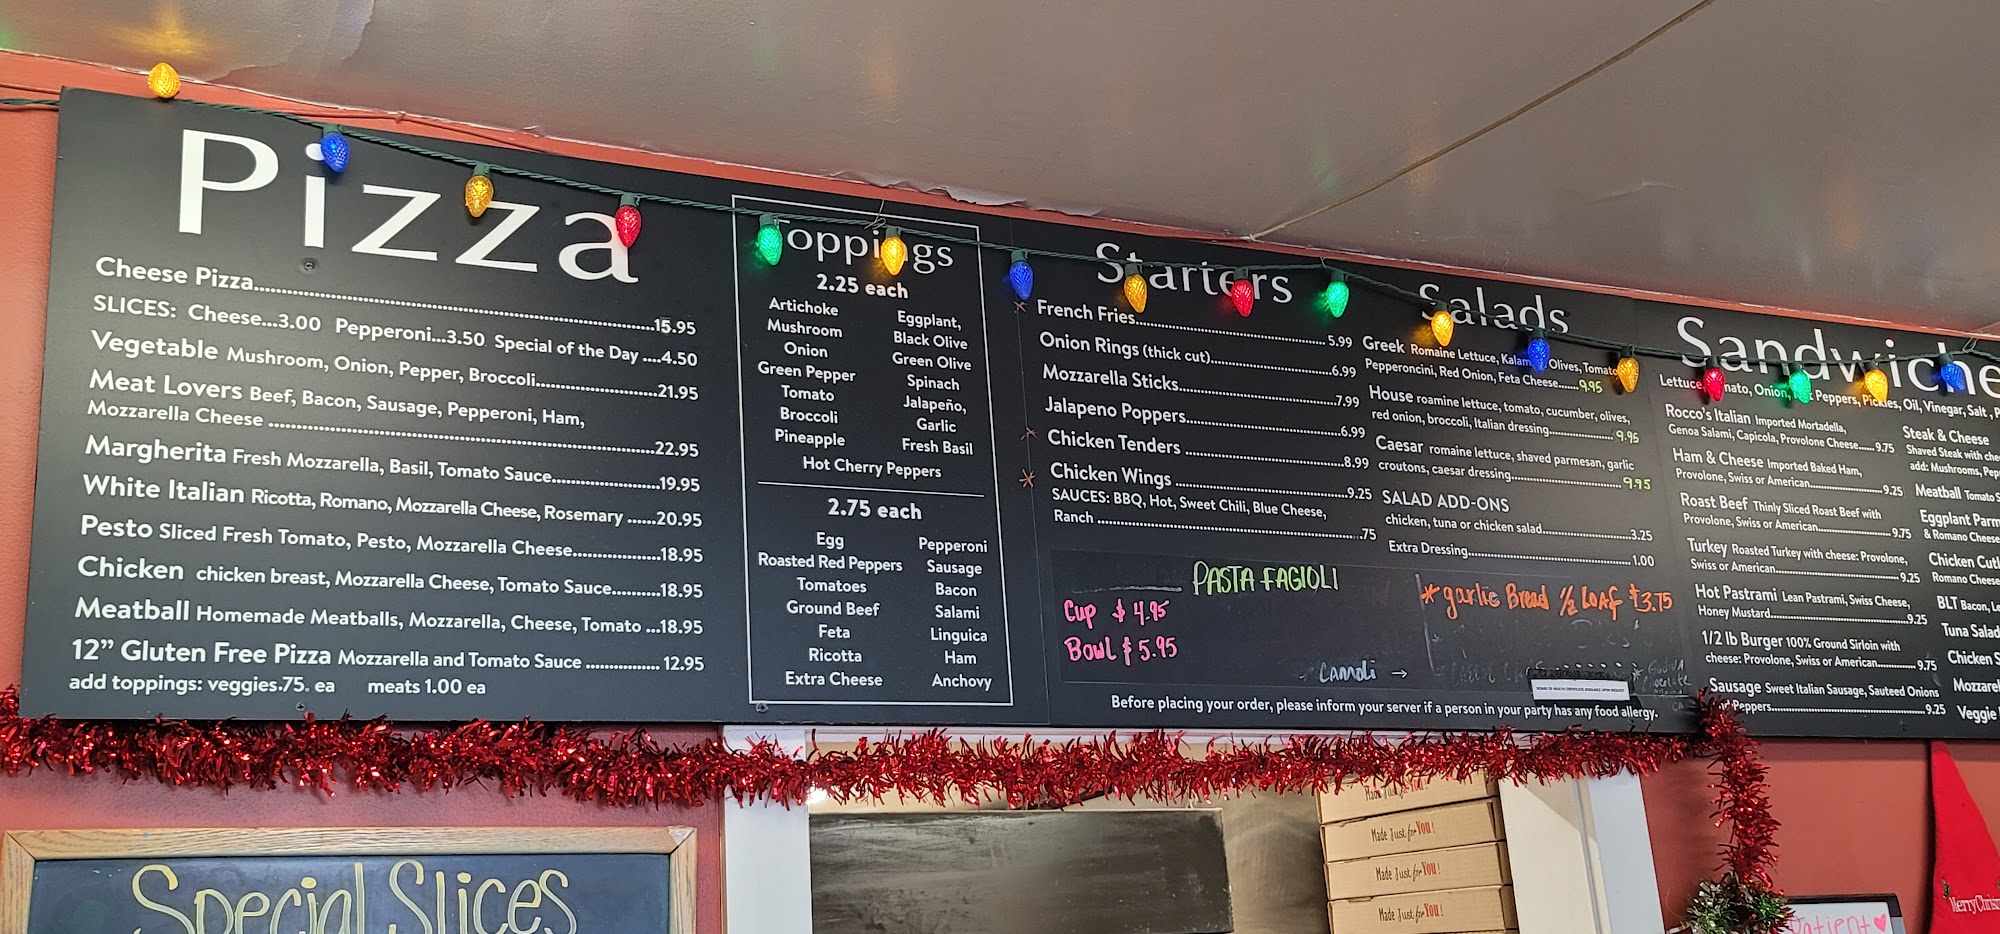 Pizza
Cheese Pizza.....15.95
SLICES: Cheese...3.00 Pepperoni...3.50 Special of the Day ....4.50
Vegetable Mushroom, Onion, Pepper, Broccoli.....21.95
Meat Lovers Beef, Bacon, Sausage, Pepperoni, Ham,
Mozzarella Cheese .....22.95
Margherita Fresh Mozzarella, Basil, Tomato Sauce.....19.95
White Italian Ricotta, Romano, Mozzarella Cheese, Rosemary ......20.95
Pesto Sliced Fresh Tomato, Pesto, Mozzarella Cheese.....18.95
Chicken chicken breast, Mozzarella Cheese, Tomato Sauce.....18.95
Meatball Homemade Meatballs, Mozzarella, Cheese, Tomato ...18.95
12" Gluten Free Pizza Mozzarella and Tomato Sauce ..... 12.95
add toppings: veggies.75. ea meats 1.00 ea
Toppings
2.25 each
Artichoke
Mushroom
Onion
Green Pepper
Tomato
Broccoli
Pineapple
Eggplant,
Black Olive
Green Olive
Spinach
Jalapeño,
Garlic
Fresh Basil
Hot Cherry Peppers
2.75 each
Egg
Roasted Red Peppers
Tomatoes
Ground Beef
Feta
Ricotta
Extra Cheese
Pepperoni
Sausage
Bacon
Salami
Linguica
Ham
Anchovy
Starters
French Fries.....5.99
Onion Rings (thick cut).....6.99
Mozzarella Sticks.....7.99
Jalapeno Poppers.....6.99
Chicken Tenders .....8.99
Chicken Wings .....9.25
SAUCES: BBQ, Hot, Sweet Chili, Blue Cheese,
Ranch .....75
Salads
Greek Romaine Lettuce, Olives, Tomato
Pepperoncini, Red Onion, Feta Cheese......9.95
House roamine lettuce, tomato, cucumber, olives,
red onion, broccoli, Italian dressing.....9.95
Caesar romaine lettuce, shaved parmesan, garlic
croutons, caesar dressing.....9.95
SALAD ADD-ONS
chicken, tuna or chicken salad.....3.25
Extra Dressing.....1.00
PASTA FAGIOLI
Cup $4.95
Bowl $5.95
*garlic Bread 1/2 LOAf $3.75
Cannoli →
Before placing your order, please inform your server if a person in your party has any food allergy.
Sandwiche
Lettuce, Onion, Peppers, Pickles, Oil, Vinegar, Salt, P
Rocco's Italian Imported Mortadella,
Genoa Salami, Capicola, Provolone Cheese.....9.75
Ham & Cheese Imported Baked Ham,
Provolone, Swiss or American.....9.25
Roast Beef Thinly Sliced Roast Beef with
Provolone, Swiss or American.....9.75
Turkey Roasted Turkey with cheese: Provolone,
Swiss or American.....9.25
Hot Pastrami Lean Pastrami, Swiss Cheese,
Honey Mustard.....9.25
1/2 lb Burger 100% Ground Sirloin with
cheese: Provolone, Swiss or American.....9.75
Sausage Sweet Italian Sausage, Sauteed Onions
Peppers.....9.25
Steak & Cheese
Shaved Steak with che
add: Mushrooms, Pep
Meatball Tomato S
Eggplant Parm
& Romano Cheese
Chicken Cutl
Romano Cheese
BLT Bacon, Le
Tuna Salad
Chicken S
Mozzarel
Veggie
Special Slices
Made Just for YOU!
Made Just for YOU!
Made Just for YOU!
Made Just for YOU!
Patient
Merry Christm